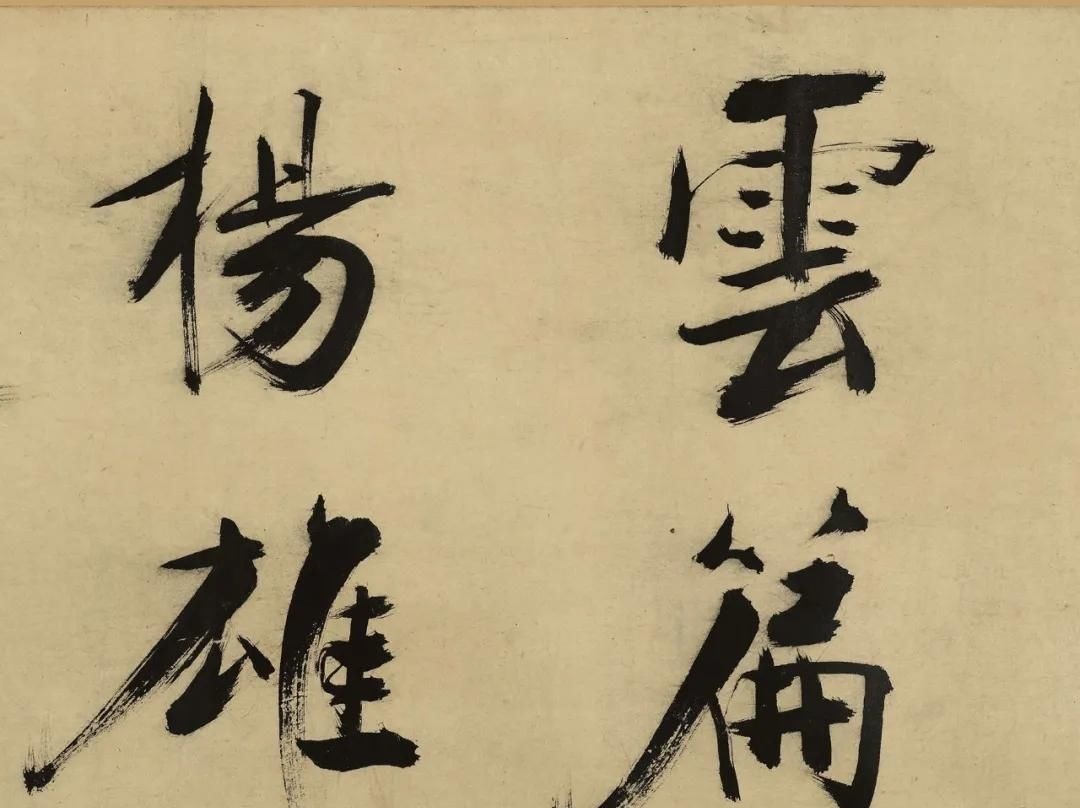 雲篇
楊雄